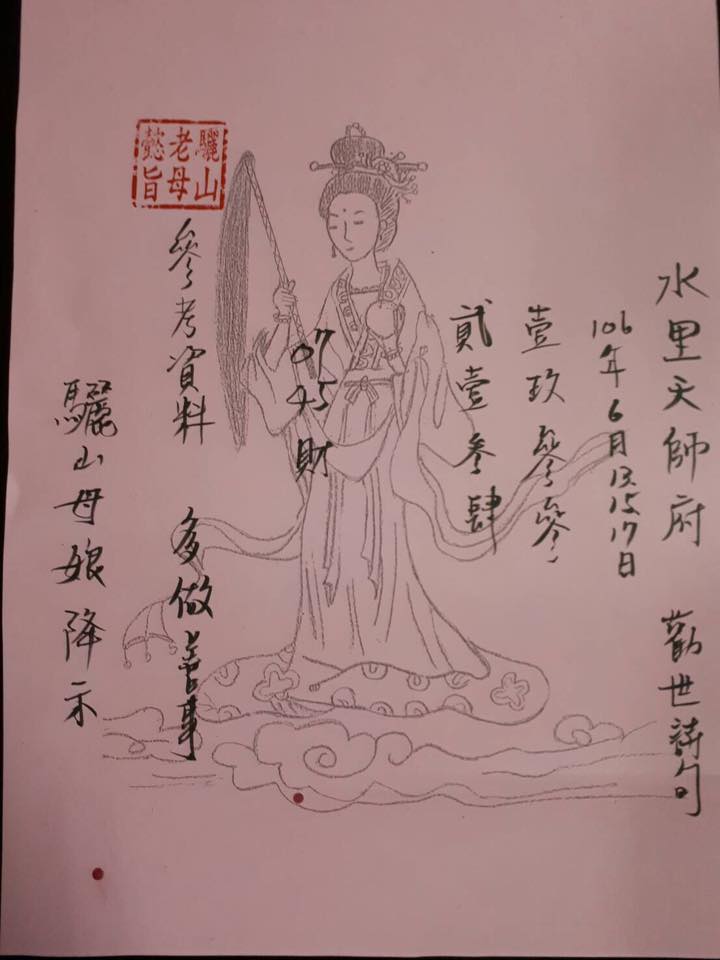 水里天師府 勸世詩句
106年6月13.15.17日
壹玖參參
貳壹參肆
07
45
財
參考資料 多做善事
驪山老母懿旨
驪山母娘降示